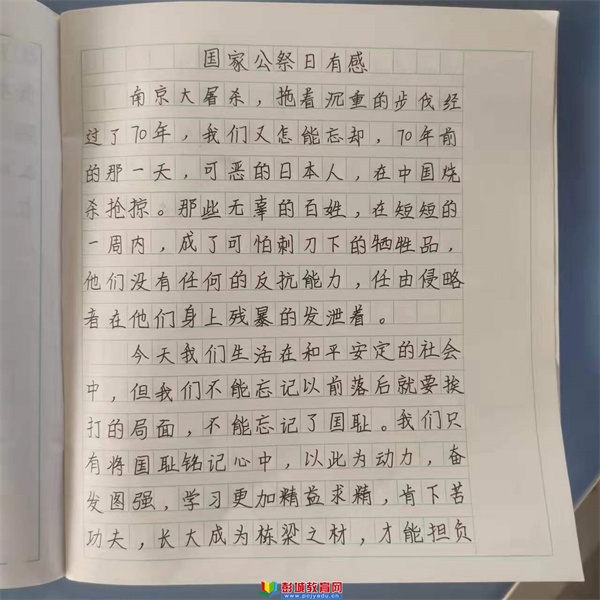 国家公祭日有感
南京大屠杀，拖着沉重的步伐经
过了70年，我们又怎能忘却，70年前
的那一天，可恶的日本人，在中国烧
杀抢掠。那些无辜的百姓，在短短的
一周内，成了可怕刺刀下的牺牲品，
他们没有任何的反抗能力，任由侵略
者在他们身上残暴的发泄着。
今天我们生活在和平安定的社会
中，但我们不能忘记以前落后就要挨
打的局面，不能忘记了国耻。我们只
有将国耻铭记心中，以此为动力，奋
发图强，学习更加精益求精，肯下苦
功夫，长大成为栋梁之材，才能担负
彭城教育网
www.pcjyedu.cn